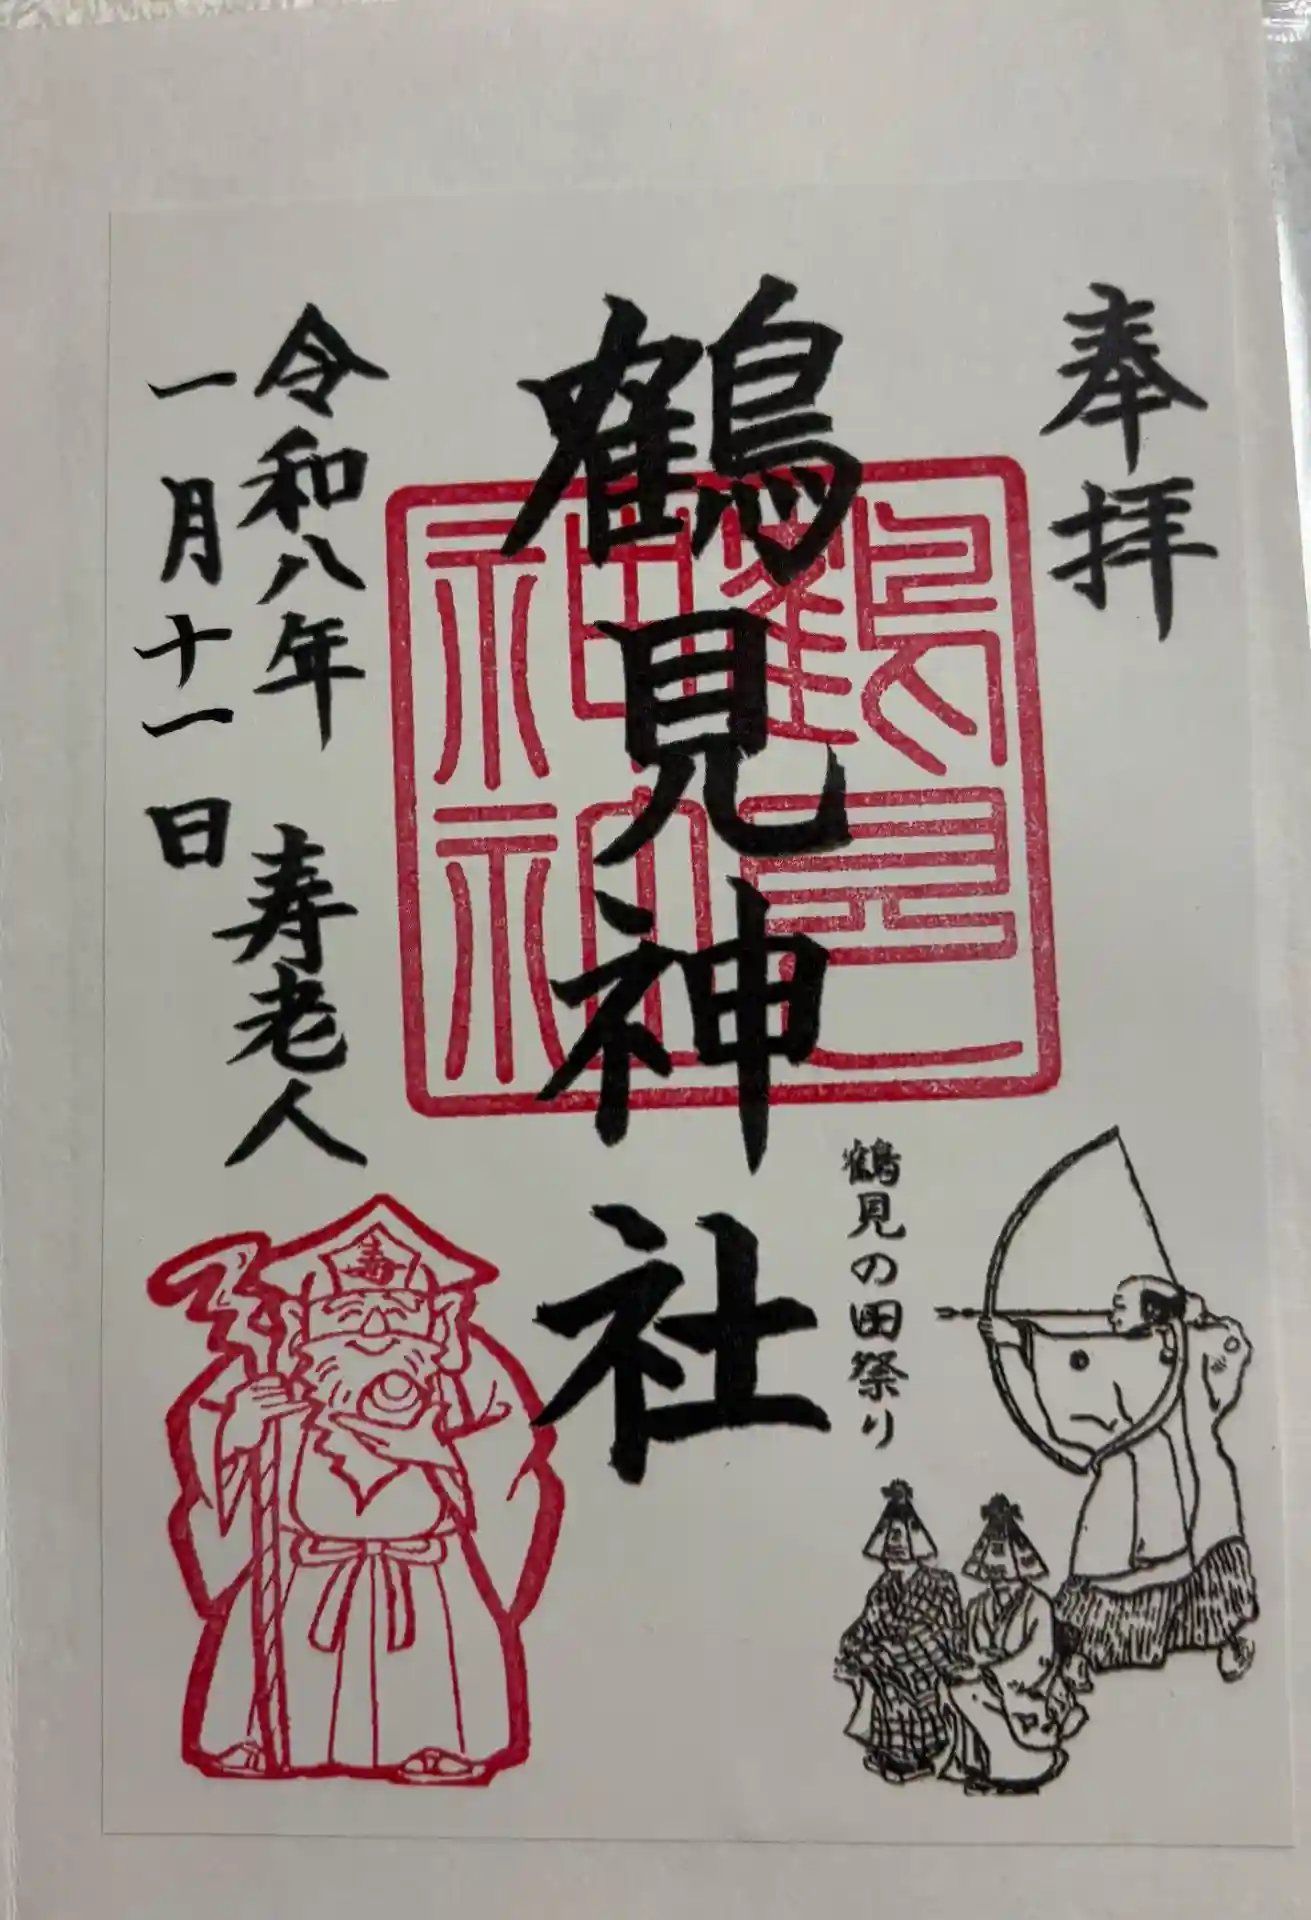 奉拝
鶴見神社
鶴見神社
鶴見の田祭り
令和八年 寿老人
一月十一日
寿